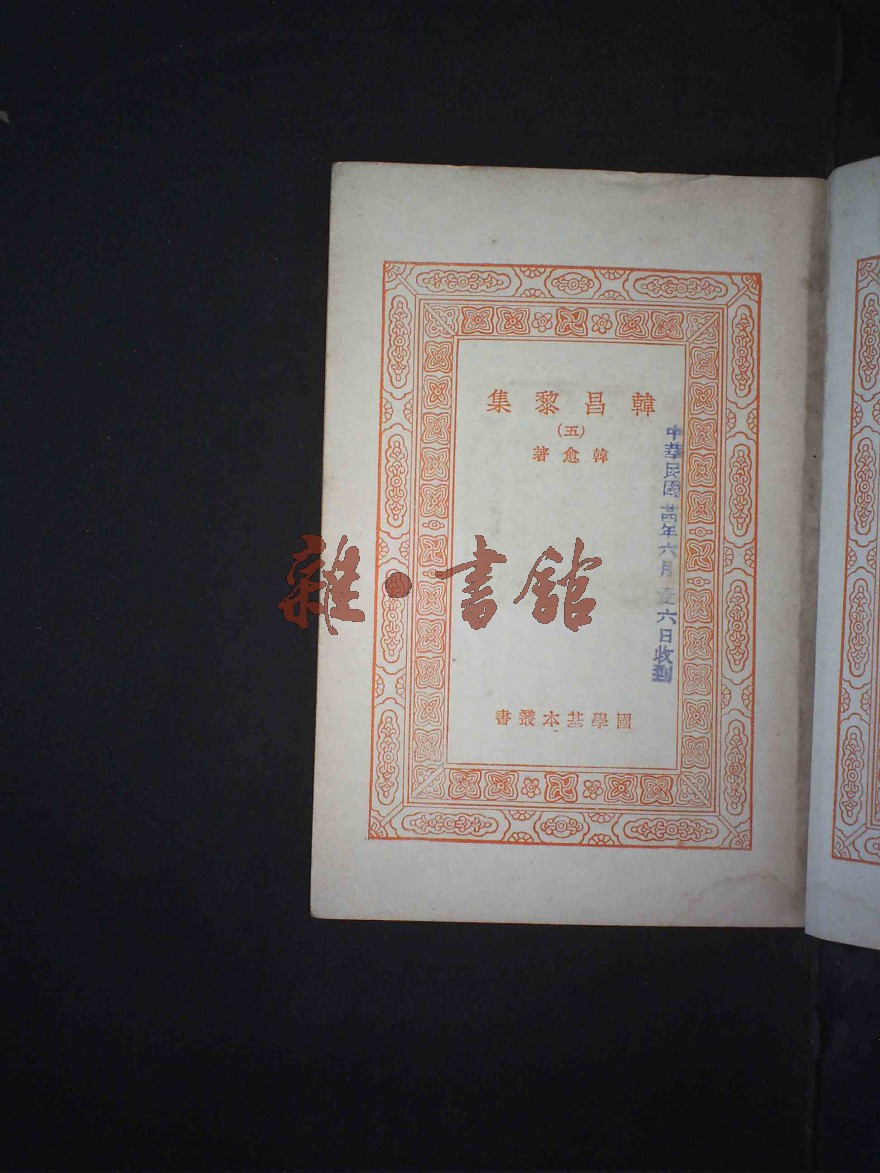 韓昌黎集
(五)
韓愈著
中華民國 廿四年六月 六日收到
雜·書館
國學基本叢書